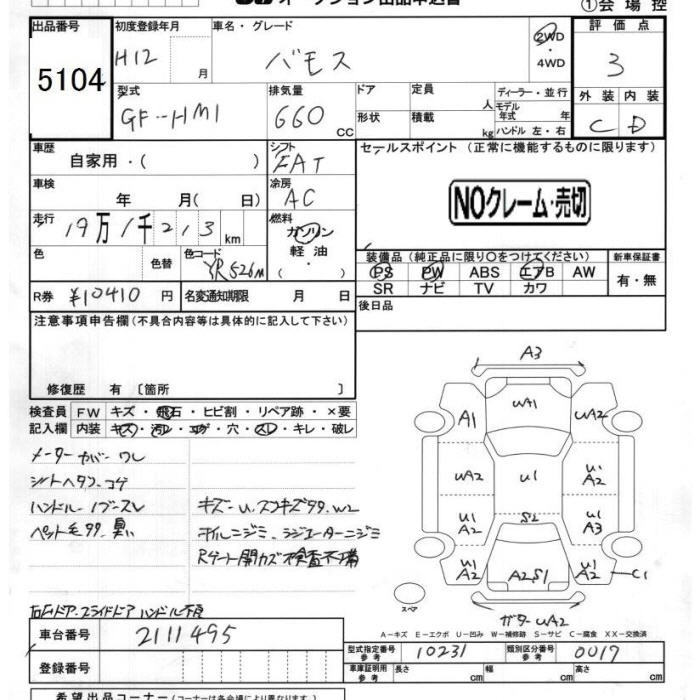 オークション出品申込書
①会場控
出品番号
5104
初度登録年月
H12 月
車名・グレード
バモス
2WD
・
4WD
評価点
3
型式
GF-HM1
排気量
660 CC
ドア
形状
定員 人
積載 kg
ディーラー・並行
モデル年式 年
ハンドル 左・右
外装 内装
C D
車歴
自家用・( )
シフト
FAT
セールスポイント (正常に機能するものに限ります)
車検
年 月( 日)
冷房
AC
NOクレーム・売切
走行
19万1千213 km
燃料
ガソリン
軽油
・( )
色
色替
色コード
YR526M
装備品 (純正品に限り○をつけてください)
新車保証書
PS PW ABS エアB AW
有・無
SR ナビ TV カワ
R券 ¥10410 円
名変通知期限 月 日
後日品
注意事項申告欄 (不具合内容等は具体的に記入して下さい)
修復歴 有 〔箇所 〕
検査員記入欄
FW キズ・飛石・ヒビ割・リペア跡・×要
内装 キズ・汚レ・コゲ・穴・スレ・キレ・破レ
メーターカバーワレ
シートヘタリ、コゲ
ハンドル・1ブースレ
キズ-U、スリキズ多々、W2
ペット毛多々、臭い
オイルニジミ、ラジエーターニジミ
Rゲート開カズ検査不備
右Rドア、スライドドアハンドル不良
A3
A1 WA1 WA2
WA2 U1 U1 A2
U1 A2 S2 U1 A3
U1 A2 A2S1 U1 A2 C1
スペア
ガターWA2
A-キズ E-エクボ U-凹み W-補修跡 S-サビ C-腐食 XX-交換済
車台番号
2111495
型式指定番号 参考 10231
類別区分番号 参考 0017
登録番号
車庫証明用 参考 長さ cm 幅 cm 高さ cm
希望出品コーナー (コーナーは各会場により異なります)